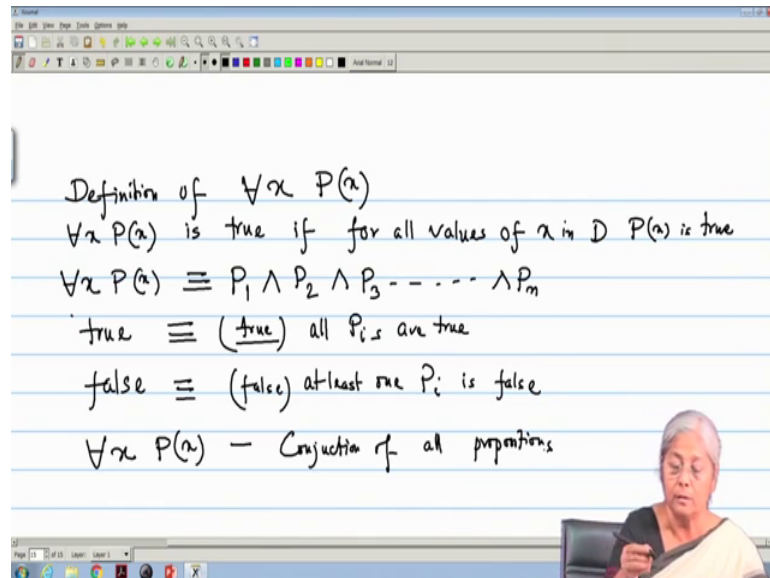 Journal
File Edit View Page Tools Options Help
Arial Normal 12
Definition of ∀x P(x)
∀x P(x) is true if for all values of x in D P(x) is true
∀x P(x) ≡ P₁ ∧ P₂ ∧ P₃ ------ ∧ Pₙ
true ≡ (true) all Pᵢs are true
false ≡ (false) at least one Pᵢ is false
∀x P(x) — Conjuction of all propontions
Page 15 of 15 Layer: Layer 1